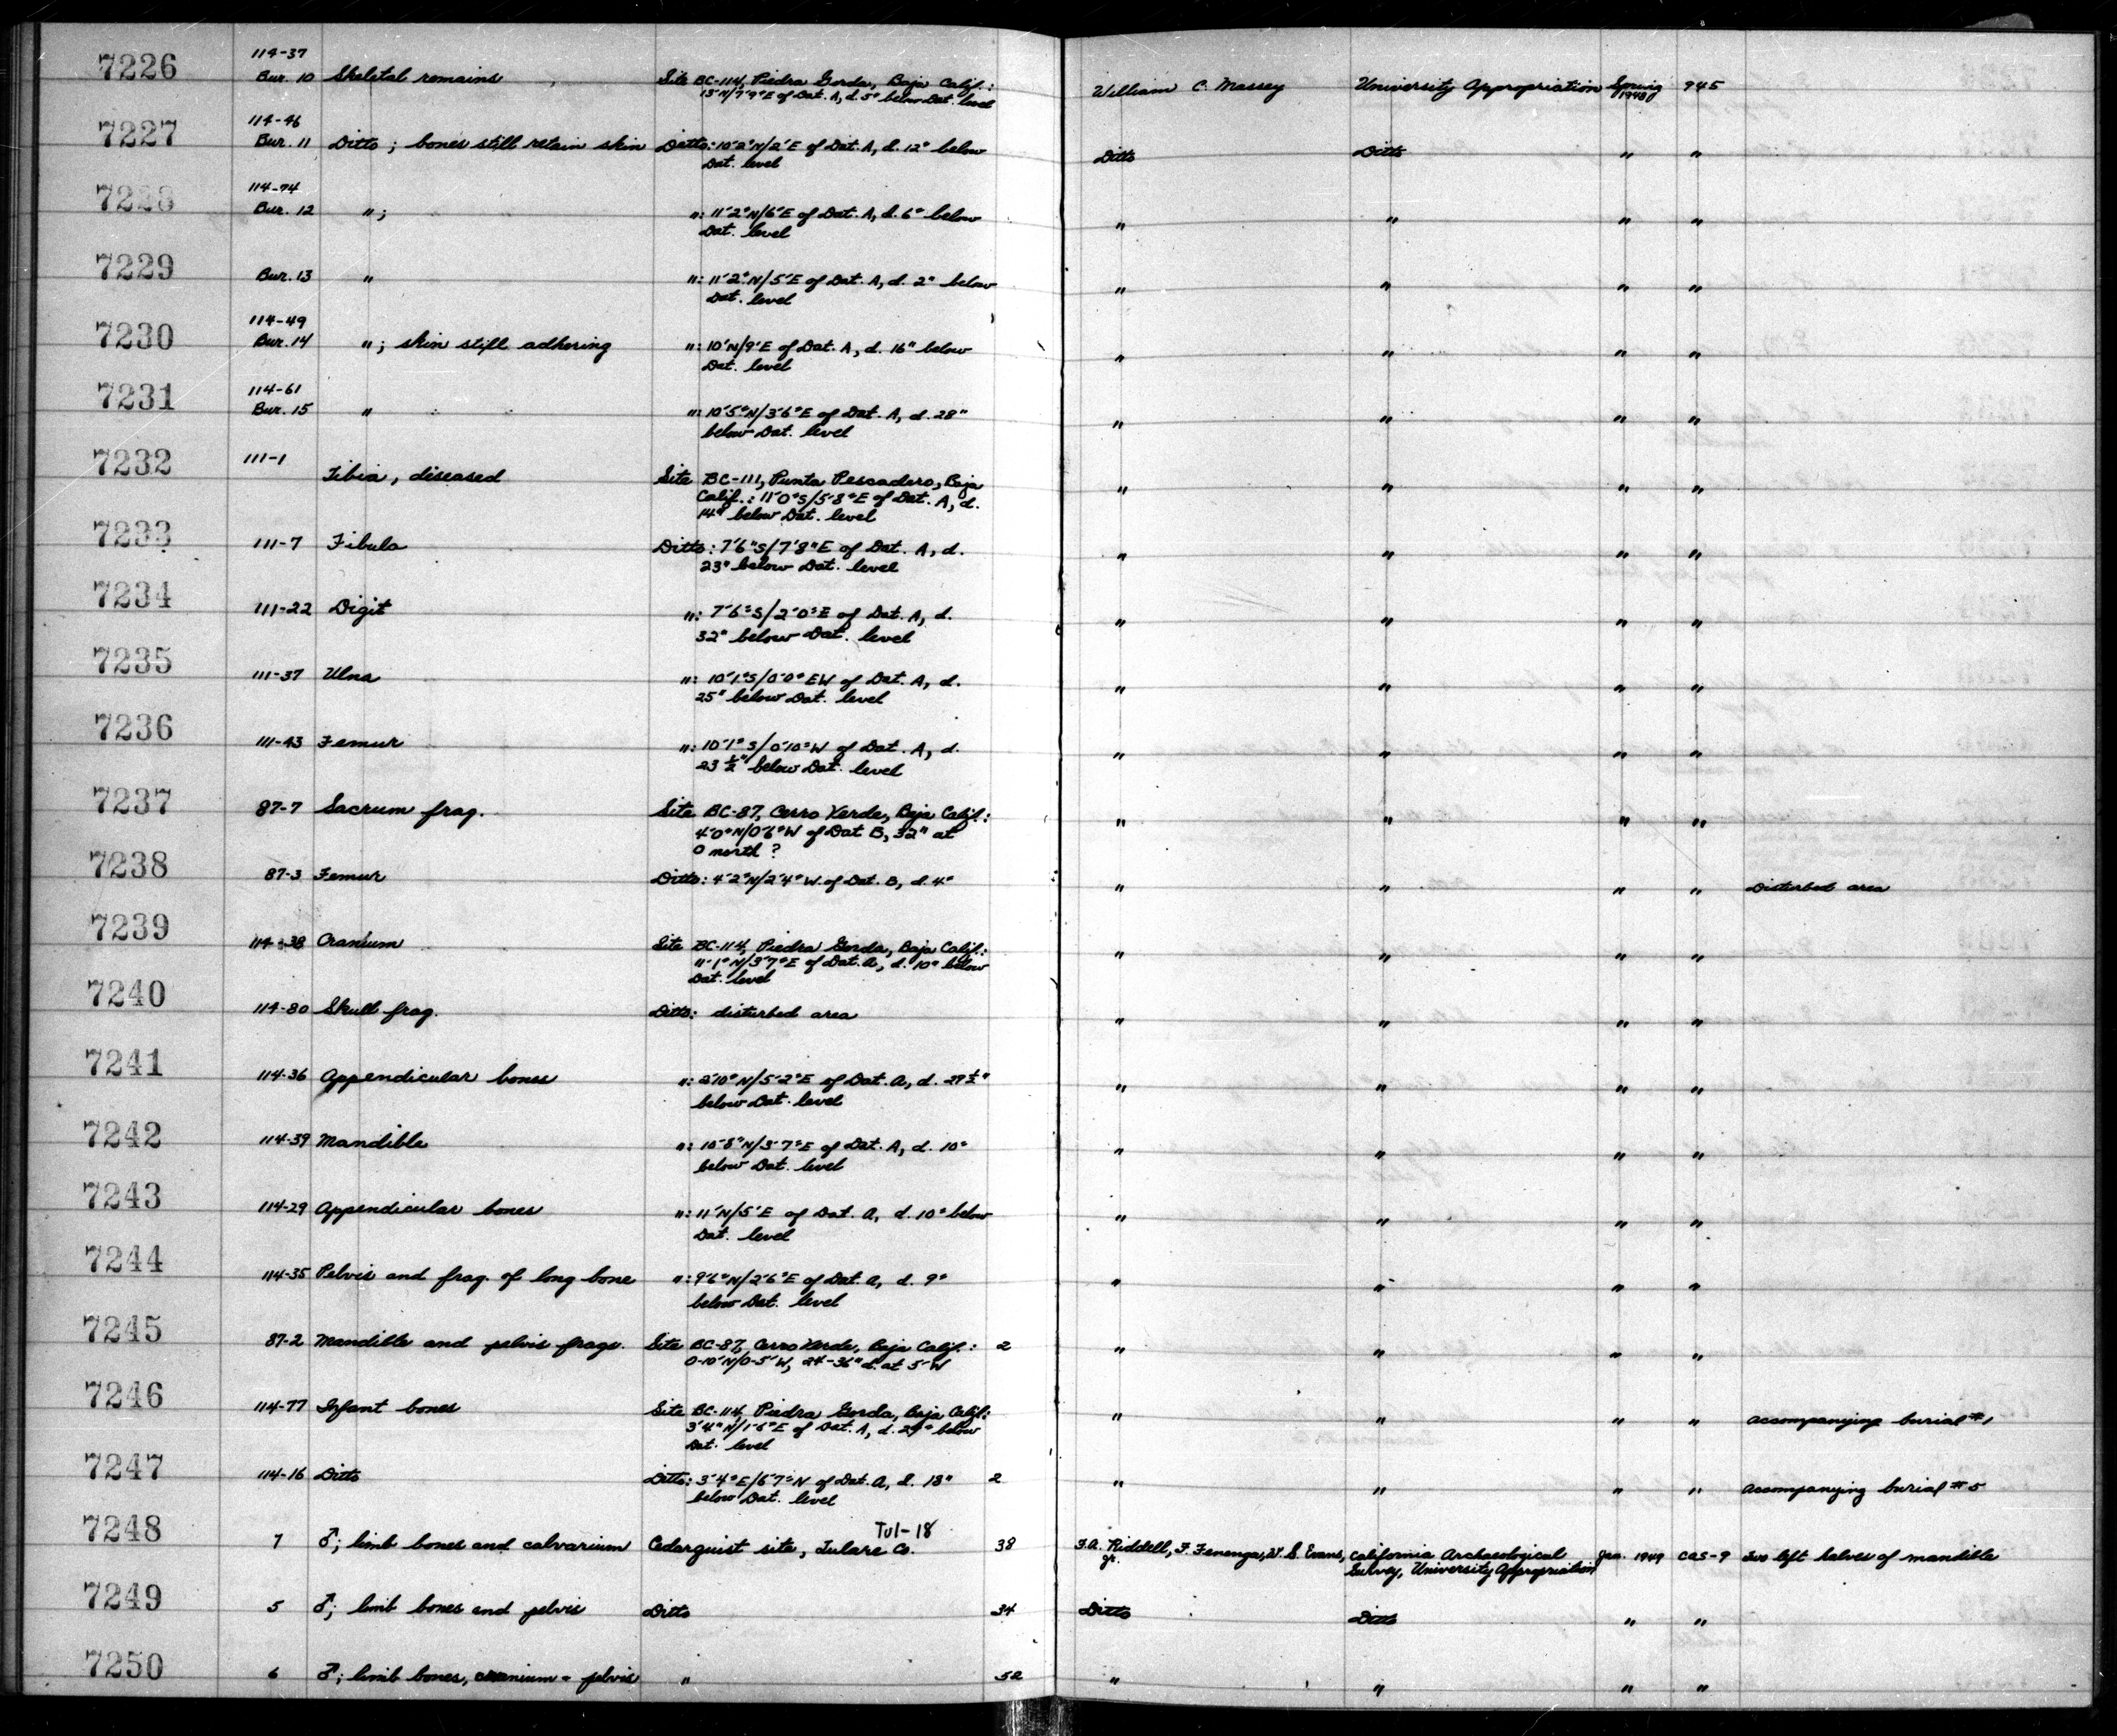 7226 114-37
Bur. 10 Skeletal remains Site BC-114, Piedra Gorda, Baja Calif.: William C. Massey University Appropriation Spring 1948 945
13'N/7'9"E of Dat. A, d. 5" below Dat. level
7227 114-46
Bur. 11 Ditto; bones still retain skin Ditto: 10'2"N/2'E of Dat. A, d. 12" below Ditto Ditto " "
Dat. level
7228 114-74
Bur. 12 "; ": 11'2"N/6'E of Dat. A, d. 6" below " " " "
Dat. level
7229 Bur. 13 " ": 11'2"N/5'E of Dat. A, d. 2" below " " " "
Dat. level
7230 114-49
Bur. 14 "; skin still adhering ": 10'N/9'E of Dat. A, d. 16" below " " " "
Dat. level
7231 114-61
Bur. 15 " ": 10'5"N/3'6"E of Dat. A, d. 28" " " " "
below Dat. level
7232 111-1 Tibia, diseased Site BC-111, Punta Pescadero, Baja " " " "
Calif.: 11'0"S/5'8"E of Dat. A, d.
14" below Dat. level
7233 111-7 Fibula Ditto: 7'6"S/7'8"E of Dat. A, d. " " " "
23" below Dat. level
7234 111-22 Digit ": 7'6"S/2'0"E of Dat. A, d. " " " "
32" below Dat. level
7235 111-37 Ulna ": 10'1"S/0'0" EW of Dat. A, d. " " " "
25" below Dat. level
7236 111-43 Femur ": 10'1"S/0'10"W of Dat. A, d. " " " "
23 ½" below Dat. level
7237 87-7 Sacrum frag. Site BC-87, Cerro Verde, Baja Calif.: " " " "
4'0"N/0'6"W of Dat B, 32" at
0 north ?
7238 87-3 Femur Ditto: 4'2"N/2'4"W of Dat. B, d. 4" " " " " Disturbed area
7239 114-38 Cranium Site BC-114, Piedra Gorda, Baja Calif.: " " " "
11'1"N/3'7"E of Dat. A, d. 10" below
Dat. level
7240 114-80 Skull frag. Ditto: disturbed area " " " "
7241 114-36 Appendicular bones ": 2'10"N/5'2"E of Dat. A, d. 29½" " " " "
below Dat. level
7242 114-39 Mandible ": 10'8"N/3'7"E of Dat. A, d. 10" " " " "
below Dat. level
7243 114-29 Appendicular bones ": 11'N/5'E of Dat. A, d. 10" below " " " "
Dat. level
7244 114-35 Pelvis and frag. of long bone ": 9'6"N/2'6"E of Dat. A, d. 9" " " " "
below Dat. level
7245 87-2 Mandible and pelvis frags. Site BC-87, Cerro Verde, Baja Calif.: 2 " " " "
0-10'N/0-5'W, 24-36" d. at 5'W
7246 114-77 Infant bones Site BC-114, Piedra Gorda, Baja Calif.: " " " " Accompanying burial #1
3'4"N/1'6"E of Dat. A, d. 29" below
Dat. level
7247 114-16 Ditto Ditto: 3'4"E/6'7"N of Dat. A, d. 18" 2 " " " " Accompanying burial #5
below Dat. level
Tul-18
7248 7 ♂; limb bones and calvarium Cedarquist site, Tulare Co. 38 F.A. Riddell, F. Fenenga, W. S. Evans, California Archaeological Jan. 1949 CAS-9 Two left halves of mandible
Jr. Survey, University Appropriation
7249 5 ♂; limb bones and pelvis Ditto 34 Ditto Ditto " "
7250 6 ♂; limb bones, cranium & pelvis " 52 " " " "